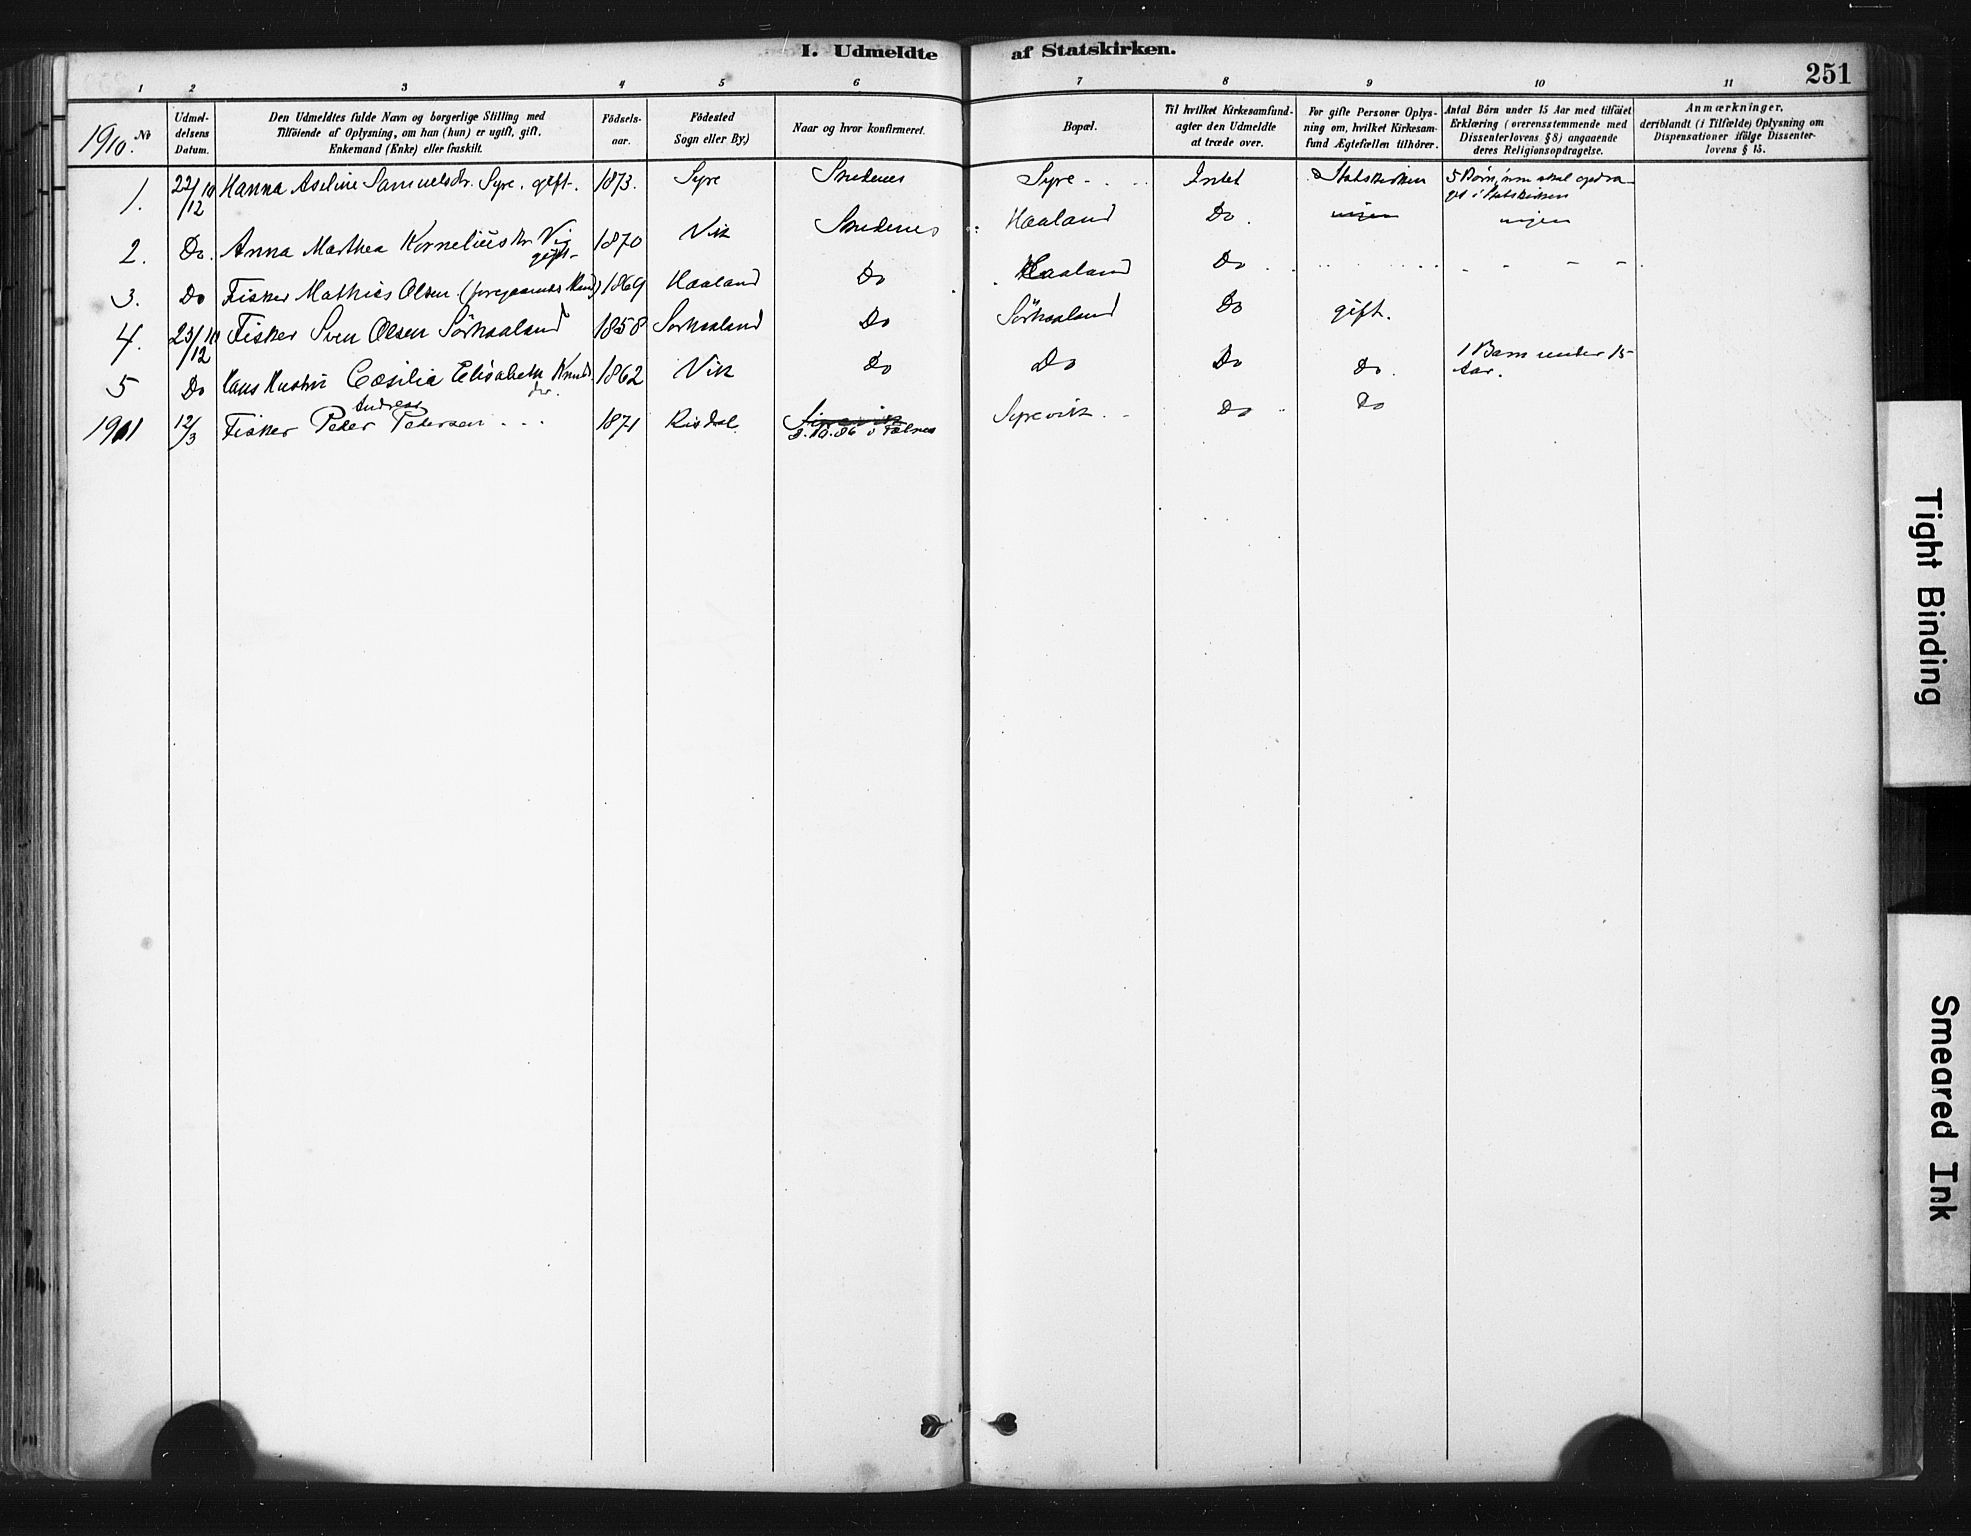 I. Udmeldte af Statskirken.
251
1 2 3 4 5 6 7 8 9 10 11
1910. No
Udmeldelsens Datum.
Den Udmeldtes fulde Navn og borgerlige Stilling med
Tilføiende af Oplysning, om han (hun) er ugift, gift,
Enkemand (Enke) eller fraskilt.
Fødselsaar.
Fødested
Sogn eller By.)
Naar og hvor konfirmeret.
Bopæl.
Til hvilket Kirkesamfund-
agter den Udmeldte
at træde over.
For gifte Personer Oplys-
ning om, hvilket Kirkesam-
fund Ægtefællen tilhører.
Antal Børn under 15 Aar med tilføiet
Erklæring (overensstemmende med
Dissenterlovens § 8) angaaende
deres Religionsopdragelse.
Anmærkninger,
deriblandt (i Tilfælde) Oplysning om
Dispensationer ifølge Dissenter-
lovens § 15.
1. 22/12 10 Hanna Aseline Samuelsdr. Syre. gift. 1873. Syre Skudenes Syre Intet Statskirken 5 Børn, som skal opdra-
ges i Statskirken
2. Do. Anna Marthea Korneliusdr. Vig gift 1870 Vik Skudenes Haaland Do. ingen ingen
3. Do Fisker Mathias Olsen (foregaaendes Mand) 1869 Haaland Do Haaland Do
4. 23/12 10 Fisker Sven Olsen Sørhaaland 1858 Sørhaaland Do Sørhaaland Do gift.
5 Do Hans Hustru Cæsilia Elisabeth Knuds
dr. 1862 Vik Do Do Do Do. 1 Barn under 15
Aar.
1911 12/3 Fisker Peder Andreas Pedersen 1871 Risdal 3.10.86 i Falnes Syrevik Do Do
Tight Binding
Smeared Ink